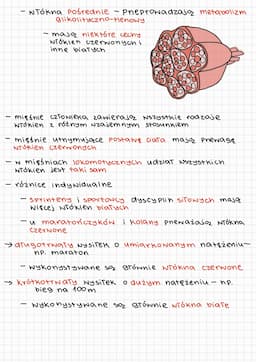 - włókna pośrednie - przeprowadzają metabolizm
glikolityczno-tlenowy
- mają niektóre cechy
włókien czerwonych i
inne białych
- mięśnie człowieka zawierają wszystkie rodzaje
włókien z różnym wzajemnym stosunkiem
- mięśnie utrzymujące postawę ciała mają przewagę
włókien czerwonych
- w mięśniach lokomotycznych udział wszystkich
włókien jest taki sam
- różnice indywidualne
- sprinterzy i sportowcy dyscyplin siłowych mają
więcej włókien białych
- u maratończyków i kolarzy przeważają włókna
czerwone
→ długotrwały wysiłek o umiarkowanym natężeniu -
np. maraton
- wykorzystywane są głównie włókna czerwone
→ krótkotrwały wysiłek o dużym natężeniu - np.
bieg na 100m
- wykorzystywane są głównie włókna białe